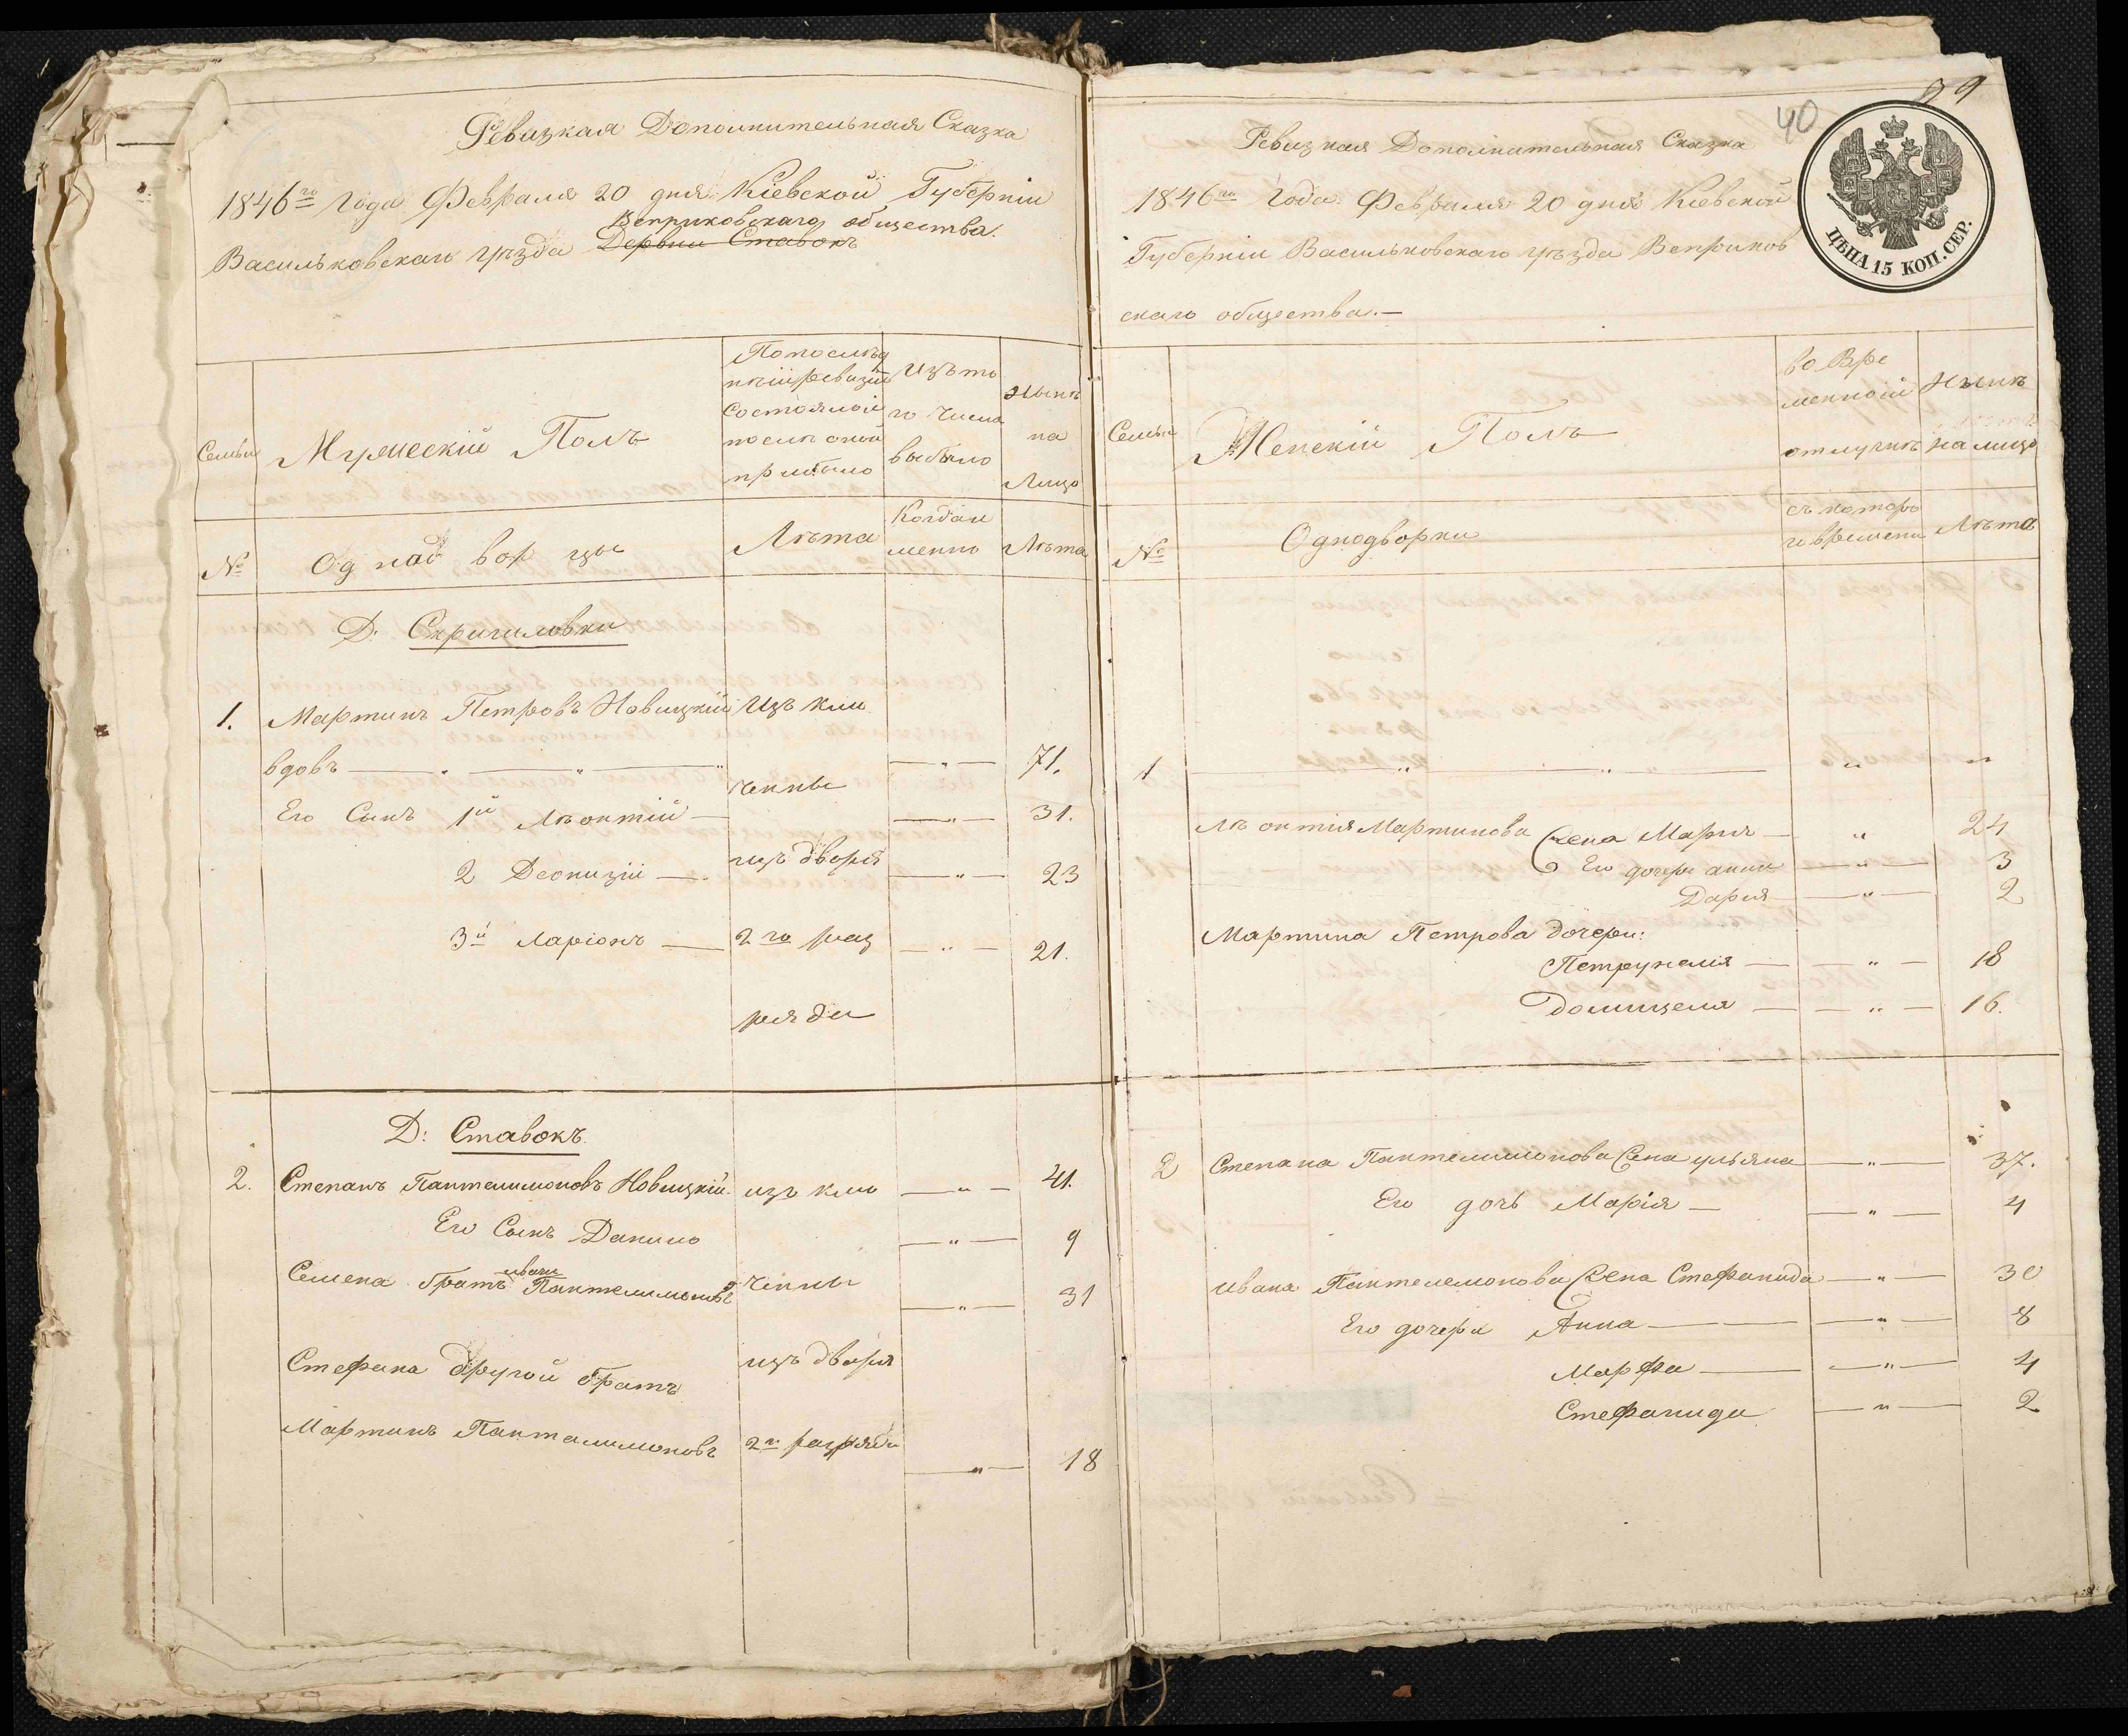 Ревизкая Дополнительная Сказка
1846го Года Февраля 20 дня Кіевской Губерніи
Веприковскаго общества.
Васильковскаго уѣзда Дервни Ставокъ
Семьи
Мужескій Полъ
Попослѣд
нѣй ревизіи
Состоялой
послѣ оной
прибыло
Изъ то
го числа
выбыло
Нынѣ
на
Лицо
№
Однодворцы
Лѣта
Когда и
менно
Лѣта
Д: Скригиловки
1. Мартинъ Петровъ Новицкій Изъ клю
вдовъ — " — " — " чины — " — 71.
Его Сынъ 1й Лѣонтій — — " — 31.
2 Деонизій — изъ дворя — " — 23
3й Ларіонъ — 2го раз — " — 21.
ряда
Д: Ставокъ
2. Степанъ Пантелимоновъ Новицкій изъ клю — " — 41.
Его Сынъ Данило — " — 9
иванъ
Семена братъ Пантелимоновъ чины — " — 31
Стефана другой братъ изъ дворя
Мартинъ Панталимоновъ 2го разряда — " — 18
89
40
Ревизкая Дополнительная Сказка
1846го Года Февраля 20 дня Кіевской
Губерніи Васильковскаго уѣзда Веприков
скаго общества.—
ЦѢНА 15 КОП. СЕР.
Семьи
Женскій Полъ
во Вре
менной
отлучкѣ
Нынѣ
на лицо
№
Однодворки
съ которо
го времени
Лѣта
1 — " — " — " "
Лѣонтія Мартинова жена Марія — " 24
Его дочери анна — " — 3
Дарія — " — 2
Мартина Петрова дочери:
Петрунелія — — " — 18
Домицеля — — " — 16.
2 Степана Пантелимонова жена ульяна — " — 37.
Его дочь Марія — — " — 4
ивана Пантелемонова жена Стефанида — " — 30
Его дочери Анна — — " — 8
Марфа — — " — 4
Стефанида — " — 2